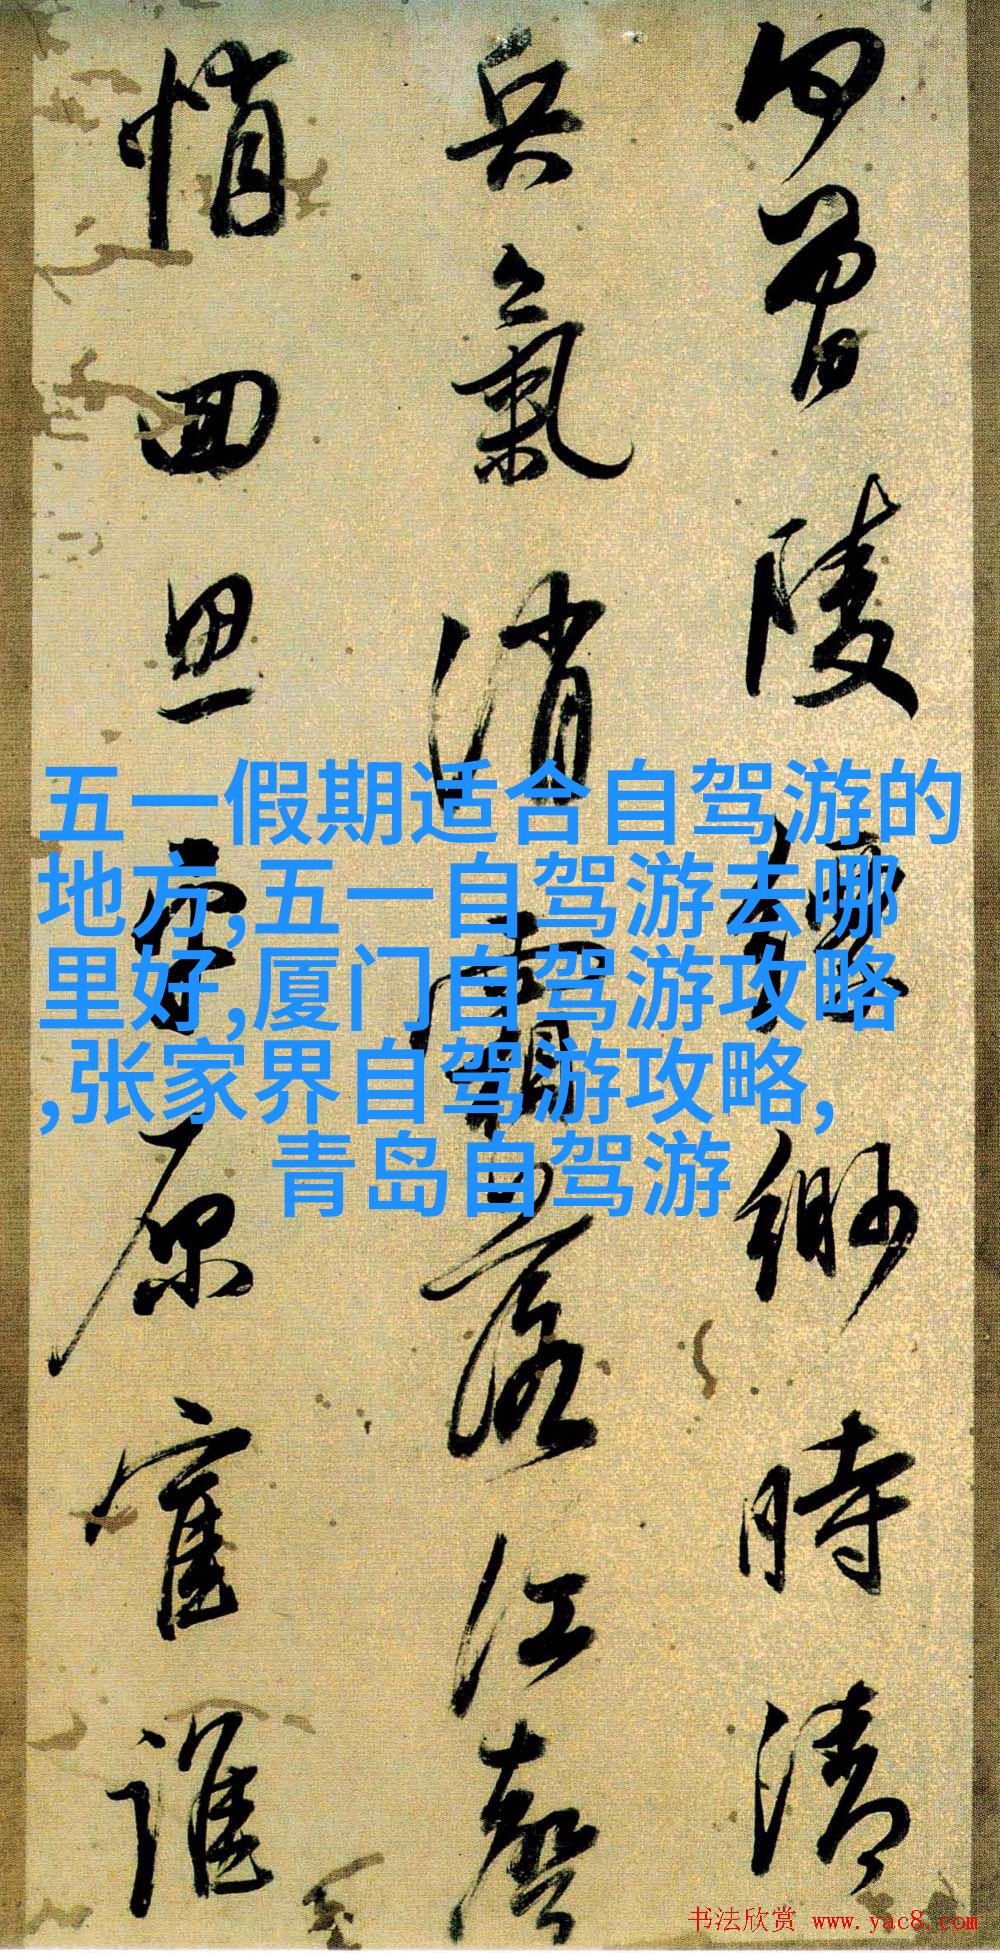 五一假期适合自驾游的
地方,五一自驾游去哪
里好,厦门自驾游攻略
,张家界自驾游攻略,
青岛自驾游
陵縹緲時清
兵氣消霜落江聲
悄回思原官誰
书法欣赏 www.yac8.com